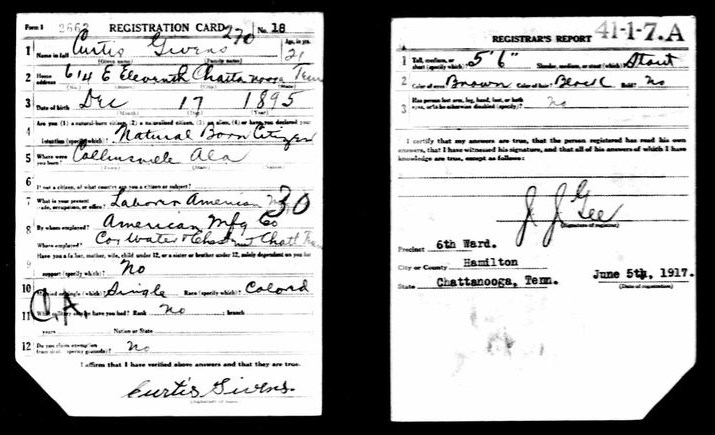 Form 1 2662 REGISTRATION CARD 270 No. 18
1 Name in full Curtis Givens Age, in yrs. 21
(Given name) (Family name)
2 Home address 614 E Eleventh Chattanooga Tenn
(No.) (Street) (City) (State)
3 Date of birth Dec 17 1895
(Month) (Day) (Year)
4 Are you (1) a natural-born citizen, (2) a naturalized citizen, (3) an alien, (4) or have you declared your
intention (specify which)? Natural Born Citizen
5 Where were you born? Collinsville Ala
(Town) (State) (Nation)
6 If not a citizen, of what country are you a citizen or subject?
7 What is your present trade, occupation, or office? Laborer American 30
8 By whom employed? American Mfg Co
Where employed? Cor Water & Chestnut Chatt
9 Have you a father, mother, wife, child under 12, or a sister or brother under 12, solely dependent on you for
support (specify which)? No
10 Married or single (which)? Single Race (specify which)? Colord
11 What military service have you had? Rank No ; branch
years ; Nation or State
CA
12 Do you claim exemption from draft (specify grounds)? No
I affirm that I have verified above answers and that they are true.
Curtis Givens.
(Signature or mark)
REGISTRAR'S REPORT 41-1-7.A
1 Tall, medium, or short (specify which)? 5'6" Slender, medium, or stout (which)? Stout
2 Color of eyes? Brown Color of hair? Black Bald? No
3 Has person lost arm, leg, hand, foot, or both eyes, or is he otherwise disabled (specify)? No
I certify that my answers are true, that the person registered has read his own
answers, that I have witnessed his signature, and that all of his answers of which I have
knowledge are true, except as follows:
J. J. Gee
(Signature of registrar)
Precinct 6th Ward.
City or County Hamilton
State Chattanooga, Tenn. June 5th, 1917.
(Date of registration)